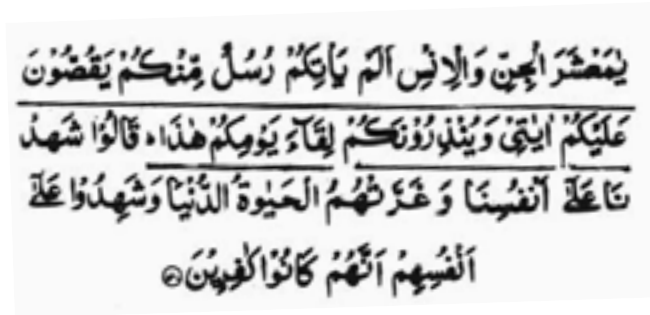 يٰمَعْشَرَ الْجِنِّ وَالْاِنْسِ اَلَمْ يَاْتِكُمْ رُسُلٌ مِّنْكُمْ يَقُصُّوْنَ
عَلَيْكُمْ اٰيٰتِيْ وَيُنْذِرُوْنَكُمْ لِقَآءَ يَوْمِكُمْ هٰذَا ؕ قَالُوْا شَهِدْ
نَا عَلٰٓى اَنْفُسِنَا وَ غَرَّتْهُمُ الْحَيٰوةُ الدُّنْيَا وَشَهِدُوْا عَلٰٓى
اَنْفُسِهِمْ اَنَّهُمْ كَانُوْا كٰفِرِيْنَ